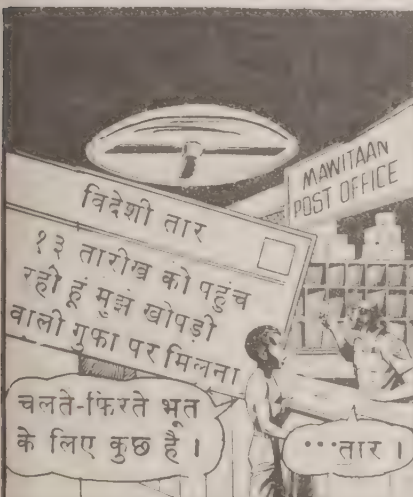 MAWITAAN
POST OFFICE
विदेशी तार
१३ तारीख को पहुंच
रही हूं मुझे खोपड़ी
वाली गुफा पर मिलना
चलते-फिरते भूत
के लिए कुछ है ।
···तार ।